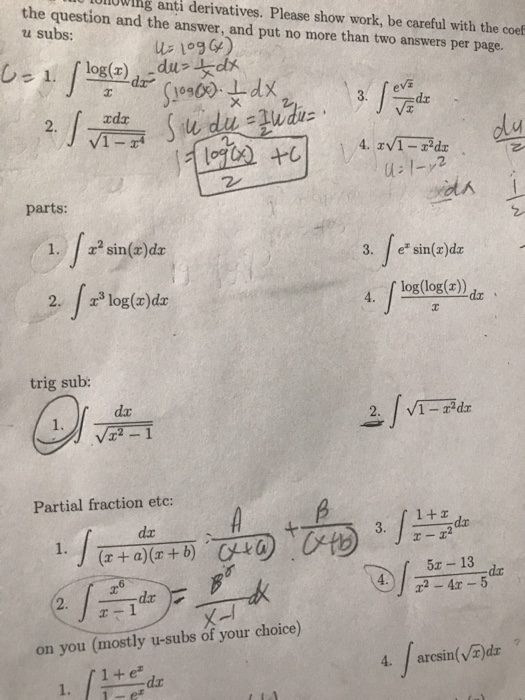 anti derivatives. Please show work, be careful with the coef
the question and the answer, and put no more than two answers per page.
u subs:
u = log(x)
1. ∫ log(x)/x dx
du = 1/x dx
∫ log(x) · 1/x dx
3. ∫ e^√x/√x dx
2. ∫ xdx/√(1 − x⁴)
∫ u du = 1/2 u² du =
log²(x)/2 + C
4. x√(1 − x²)dx
u = 1 − x²
parts:
1. ∫ x² sin(x)dx
3. ∫ eˣ sin(x)dx
2. ∫ x³ log(x)dx
4. ∫ log(log(x))/x dx
trig sub:
1. ∫ dx/√(x² − 1)
2. ∫ √(1 − x²)dx
Partial fraction etc:
1. ∫ dx/((x + a)(x + b))
A/(x+a) + B/(x+b)
3. ∫ (1 + x)/(x − x²) dx
2. ∫ x⁶/(x − 1) dx =
x-1 dx
4. ∫ (5x − 13)/(x² − 4x − 5) dx
on you (mostly u-subs of your choice)
1. ∫ (1 + eˣ)/(1 − eˣ) dx
4. ∫ arcsin(√x)dx